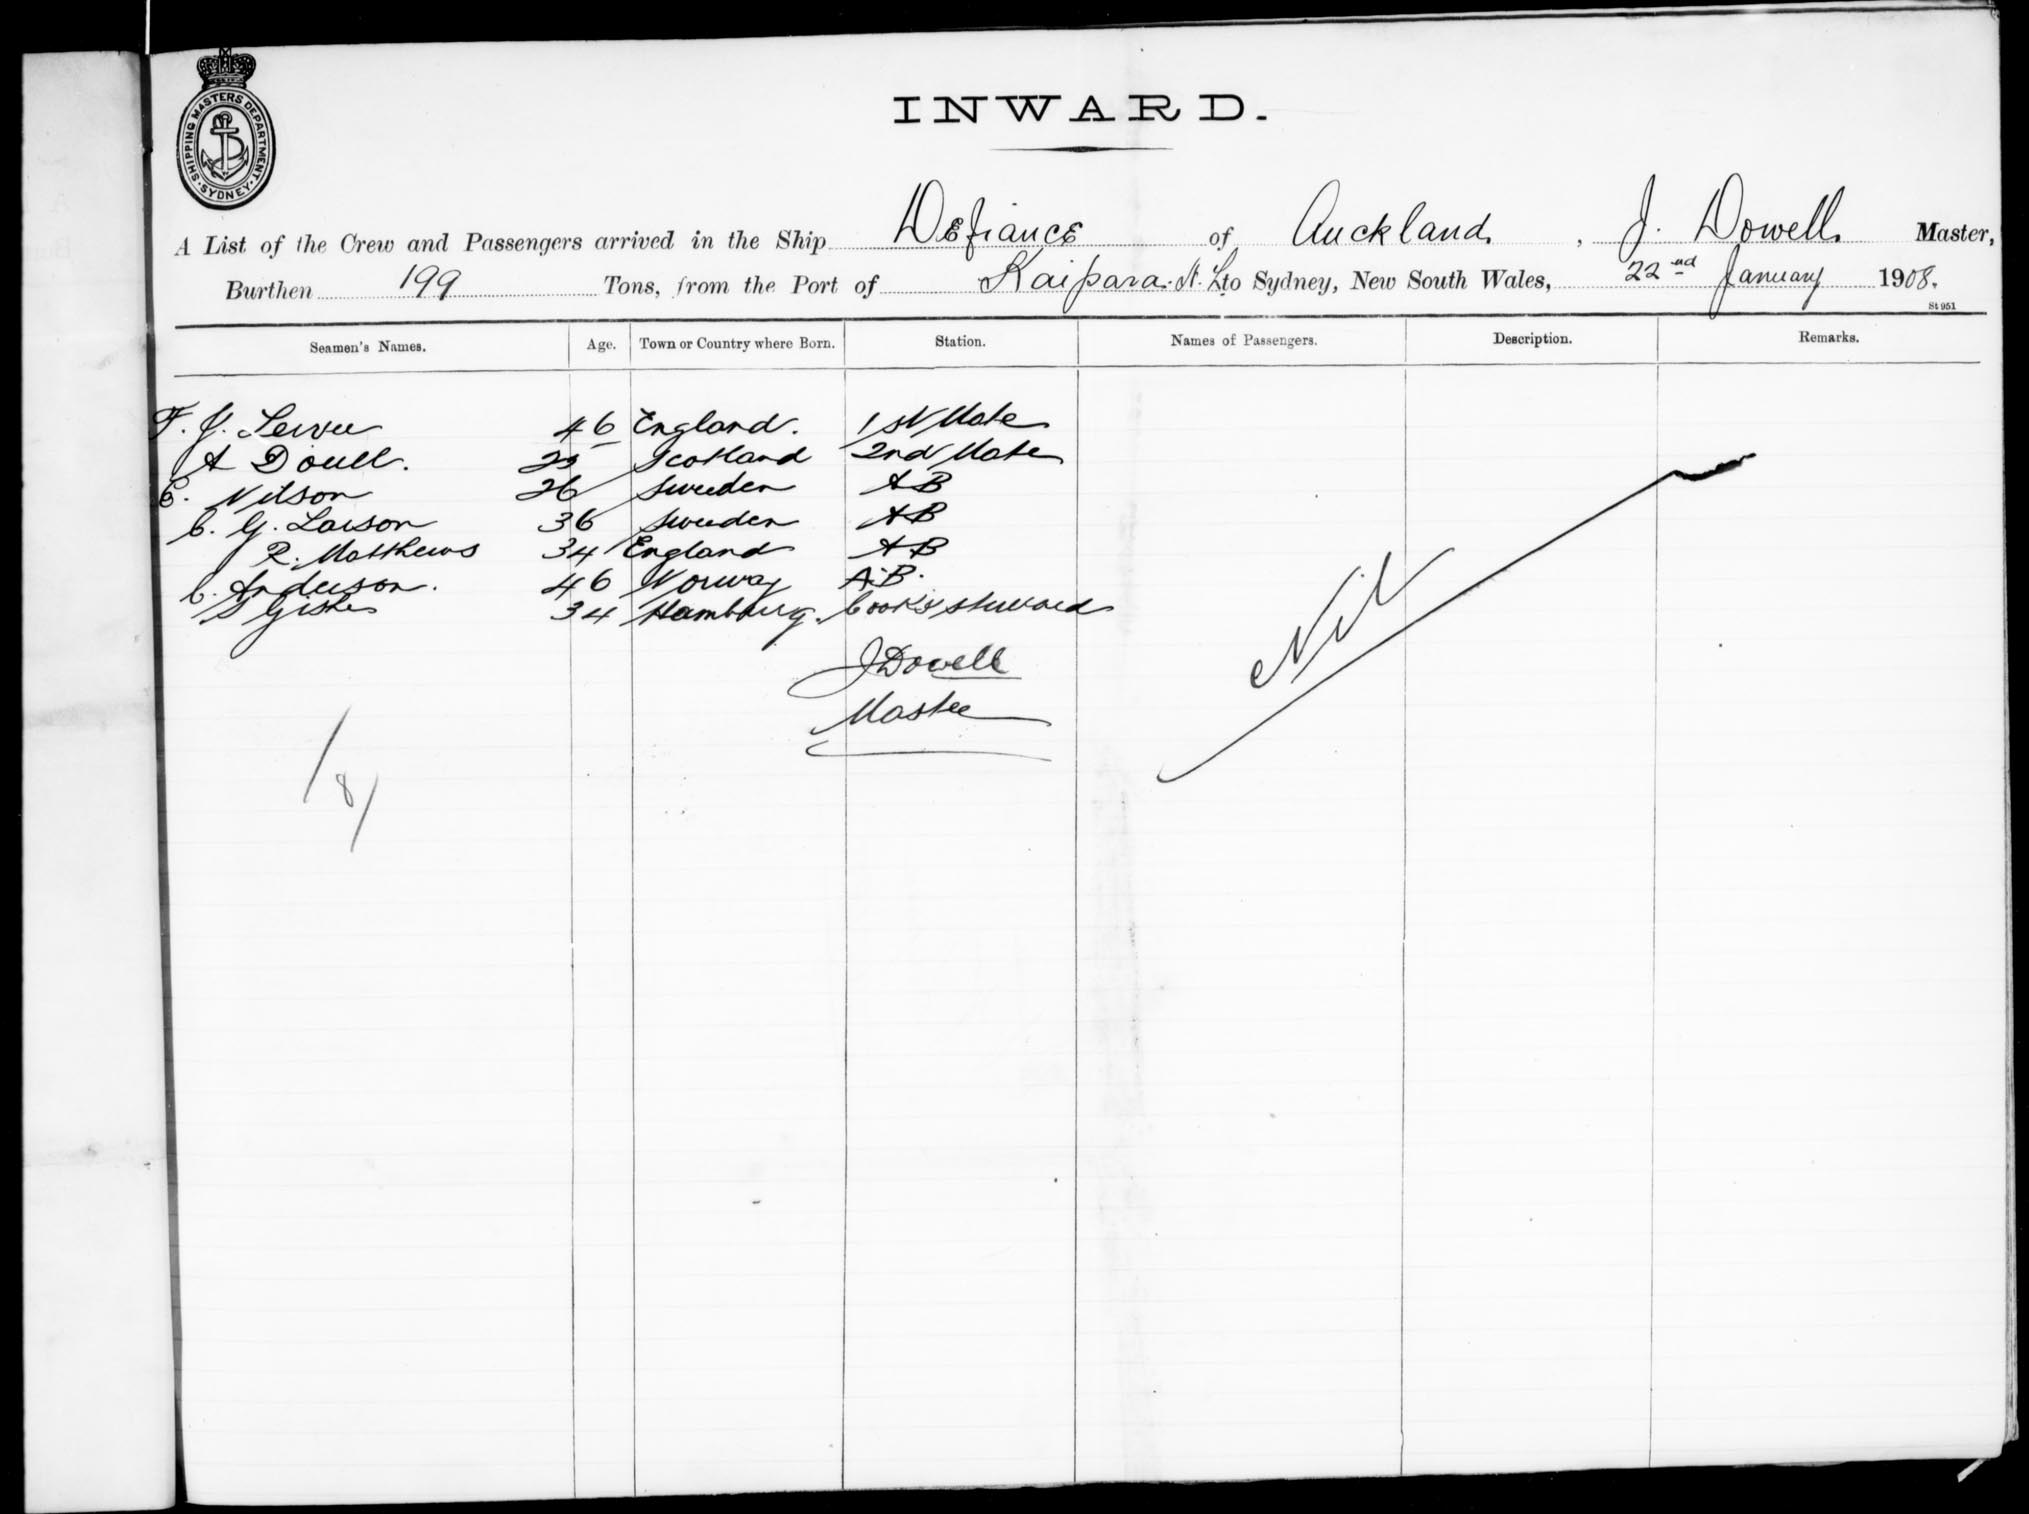 SHIPPING MASTERS DEPARTMENT
SYDNEY
INWARD.
A List of the Crew and Passengers arrived in the Ship Defiance of Auckland, J. Dowell. Master,
Burthen 199 Tons, from the Port of Kaipara. N. Z. to Sydney, New South Wales, 22nd January 1908.
St 951
Seamen's Names. Age. Town or Country where Born. Station. Names of Passengers. Description. Remarks.
F. J. 46 England. 1st Mate
A 25 Scotland 2nd Mate
E. Nilson 26 Sweden AB
C. G. Larson 36 Sweden AB
R. Matthews 34 England AB
C. Anderson. 46 Norway A.B.
34 Hamburg. Cook & Steward
Nil
J Dowell
Master
/8/